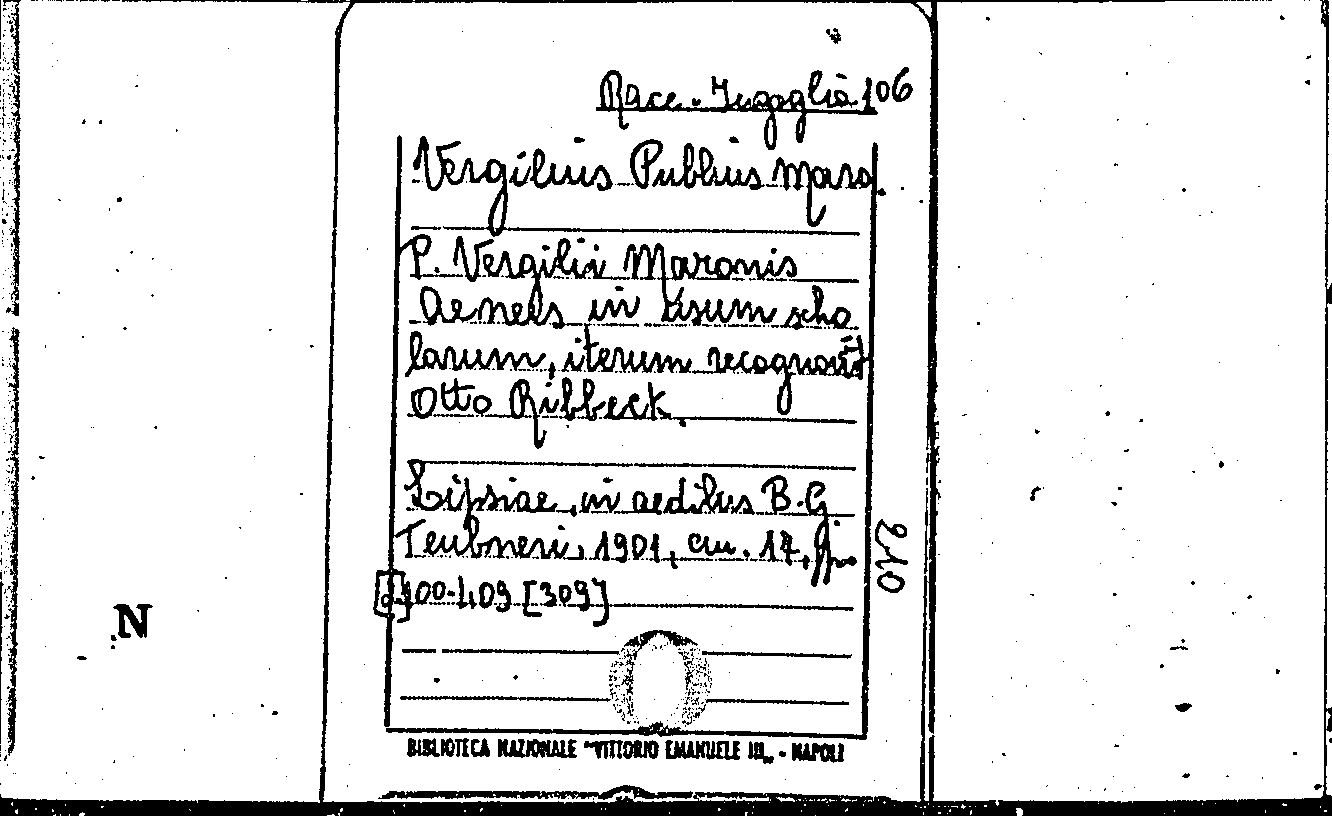 Racc. Ingoglia 106
Vergilius Publius Maro.
P. Vergilii Maronis
Aeneis in usum scho
larum, iterum recognovit
Otto Ribbeck.
Lipsiae, in aedibus B.G.
Teubneri, 1901, cm. 17, pp.
100-409 [309]
210
N
BIBLIOTECA NAZIONALE "VITTORIO EMANUELE III„ - NAPOLI